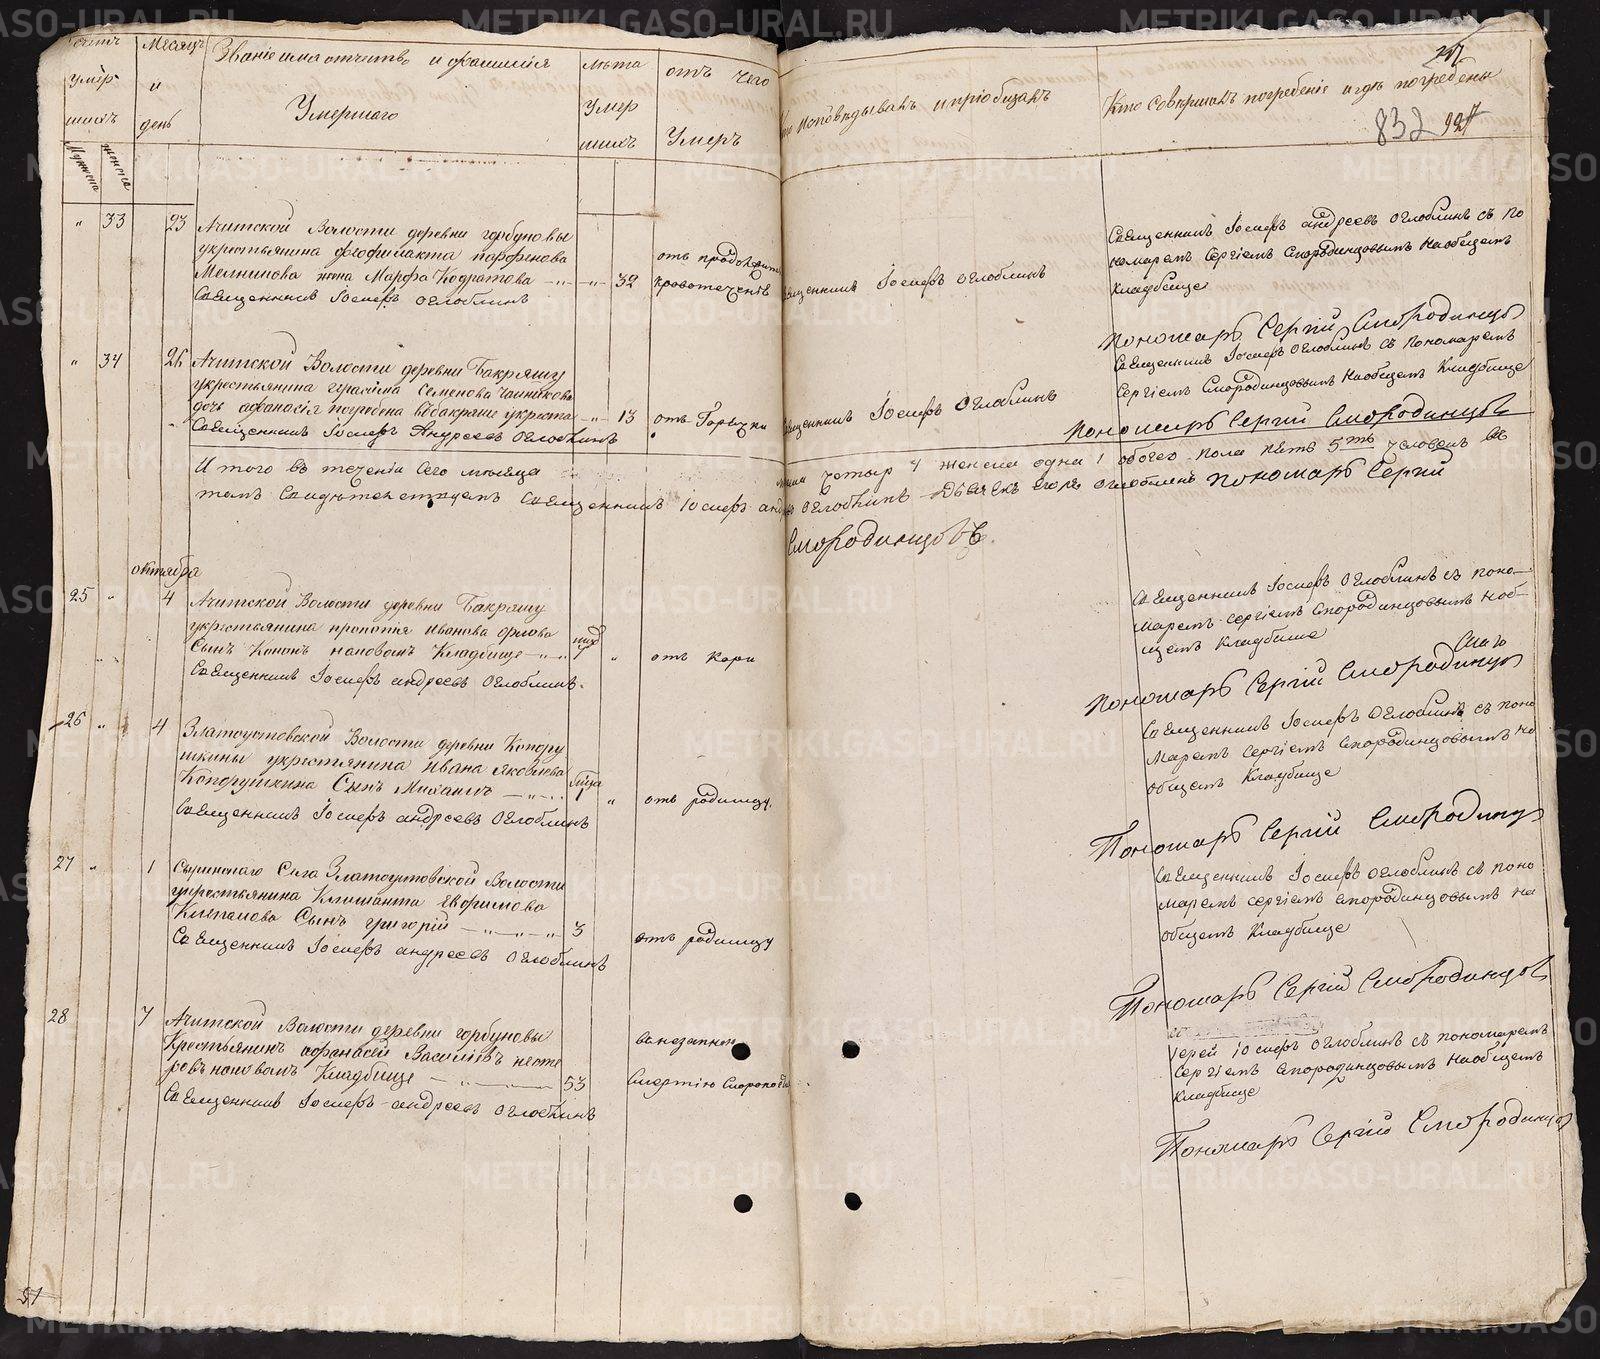 Счетъ умер шихъ
Мужеска женска
Месяцъ и день
Званіе имя отчетво и фамилія
Умершаго
лѣта Умер шихъ
отъ чего Умеръ
Кто исповѣдывалъ и пріобщалъ
Кто Совершалъ погребеніе и гдѣ погребены
832
" 33 23 Ачитской Волости деревни горбуновы
укрестьянина феофилакта парфенова
Мелникова жена Марфа Кодратова " 32
Священникъ Іосифъ Оглоблинъ
отъ продолжит
кровотеченія
Священникъ Іосифъ Оглоблинъ
Священникъ Іосифъ андреевъ Оглоблинъ съ по
номаремъ Сергіемъ Смородинцовымъ наобщемъ
Кладбище
Пономарь Сергій Смородинцовъ
" 34 26 Ачитской Волости деревни Бакряшу
укрестьянина герасима Семенова
дочь афанасія погребена 13
Священникъ Іосифъ Андреевъ Оглоблинъ
отъ Горячки
Священникъ Іосифъ Оглоблинъ
Священникъ Іосифъ Оглоблинъ съ пономаремъ
Сергіемъ Смородинцовымъ наобщемъ Кладбище
Пономарь Сергій Смородинцовъ
И того въ теченіи Сего месяца четыр 4 женска одна 1 обоего пола пять 5ть человекъ въ
томъ Свидѣтелствуемъ Священникъ Іосифъ андреевъ Оглоблинъ Дьячекъ егоръ Оглоблинъ пономарь Сергій
Смородинцовъ.
октября
25 " 4 Ачитской Волости деревни Бакряшу
укрестьянина прокопія Иванова орлова
Сынъ Кононъ нановомъ Кладбище
Священникъ Іосифъ андреевъ Оглоблинъ.
отъ Кори
Священникъ Іосифъ Оглоблинъ съ поно-
маремъ Сергіемъ Смородинцовымъ наоб-
щемъ Кладбище
Пономарь Сергій Смородинцовъ
26 " 4 Златоустовской Волости деревни Копору
шкины укрестянина Ивана Яковлева
Копорушкина Сынъ Михаилъ
Священникъ Іосифъ андреевъ Оглоблинъ
отъ родимцу.
Священникъ Іосифъ Оглоблинъ съ поно
маремъ Сергіемъ Смородинцовымъ на
общемъ Кладбище
Пономарь Сергій Смородинцовъ
27 " 1 Сыринскаго Села Златоустовской Волости
укрестьянина Климанта Евфимова
Сынъ григорій 3
Священникъ Іосифъ андреевъ Оглоблинъ
отъ родимцу
Священникъ Іосифъ Оглоблинъ съ поно
маремъ Сергіемъ Смородинцовымъ на
общемъ Кладбище
Пономарь Сергій Смородинцовъ
28 7 Ачитской Волости деревни горбуновы
Крестьянинъ афанасей Василіевъ несте
ровъ нановомъ Кладбище 53
Священникъ Іосифъ андреевъ Оглоблинъ
внезапной
Смертію
Іерей Іосифъ Оглоблинъ съ пономаремъ
Сергіемъ Смородинцовымъ наобщемъ
Кладбище
Пономарь Сергій Смородинцовъ
51
METRIKI.GASO-URAL.RU